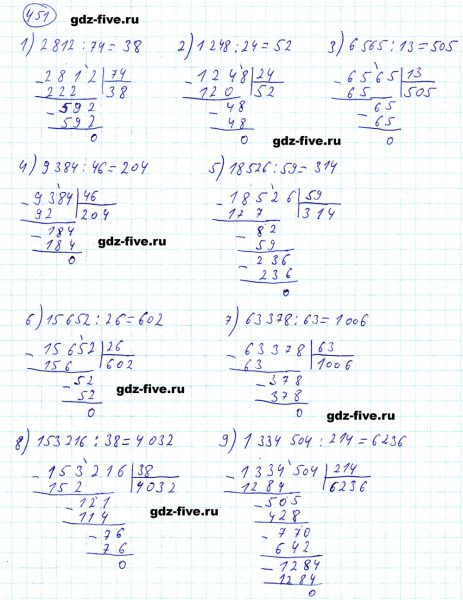 451 gdz-five.ru
1) 2812 : 74 = 38 2) 1248 : 24 = 52 3) 6565 : 13 = 505
- 2812 | 74 - 1248 | 24 - 6565 | 13
222 | 38 120 | 52 65 | 505
- 592 - 48 - 65
592 48 65
0 0 0
gdz-five.ru
4) 9384 : 46 = 204 5) 18526 : 59 = 314
- 9384 | 46 - 18526 | 59
92 | 204 177 | 314
- 184 - 82
184 59
0 - 236
236
0
gdz-five.ru
6) 15652 : 26 = 602 7) 63378 : 63 = 1006
- 15652 | 26 - 63378 | 63
156 | 602 63 | 1006
- 52 - 378
52 378
0 0
gdz-five.ru gdz-five.ru
8) 153216 : 38 = 4032 9) 1334504 : 214 = 6236
- 153216 | 38 - 1334504 | 214
152 | 4032 1284 | 6236
- 121 - 505
114 428
- 76 - 770
76 642
0 - 1284
1284
0
gdz-five.ru